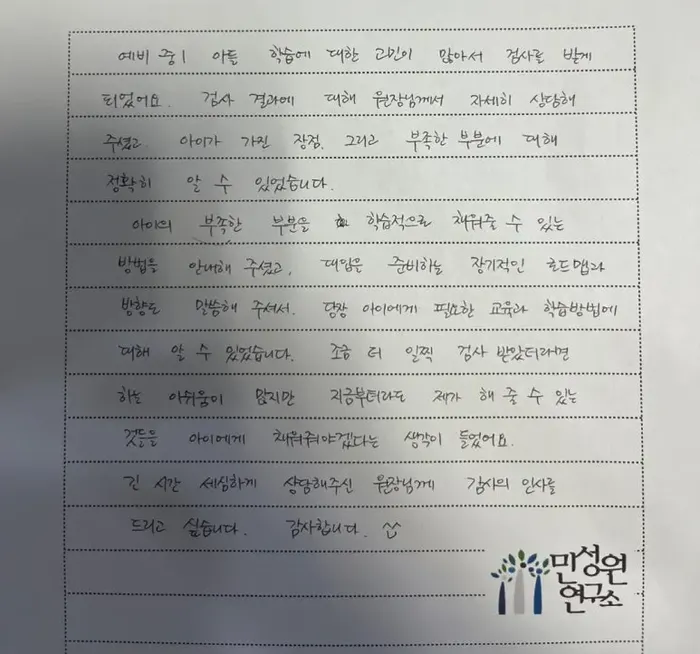 예비 중1 아들 학습에 대한 고민이 많아서 검사를 받게
되었어요. 검사 결과에 대해 원장님께서 자세히 상담해
주셨고 아이가 가진 장점, 그리고 부족한 부분에 대해
정확히 알 수 있었습니다.
아이의 부족한 부분을 학습적으로 채워줄 수 있는
방법을 안내해 주셨고, 대입을 준비하는 장기적인 로드맵과
방향도 말씀해 주셔서, 당장 아이에게 필요한 교육과 학습방법에
대해 알 수 있었습니다. 조금 더 일찍 검사 받았더라면
하는 아쉬움이 많지만 지금부터라도 제가 해 줄 수 있는
것들을 아이에게 채워줘야겠다는 생각이 들었어요.
긴 시간 세심하게 상담해주신 원장님께 감사의 인사를
드리고 싶습니다. 감사합니다. ^^
민성원
연구소